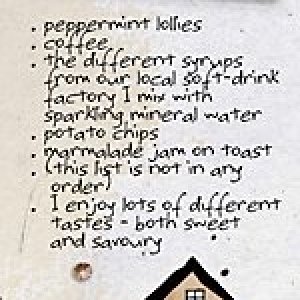 . peppermint lollies
. coffee
. the different syrups
from our local soft-drink
factory I mix with
sparkling mineral water
. potato chips
. marmalade jam on toast
. (this list is not in any
order)
. I enjoy lots of different
tastes - both sweet
and savoury